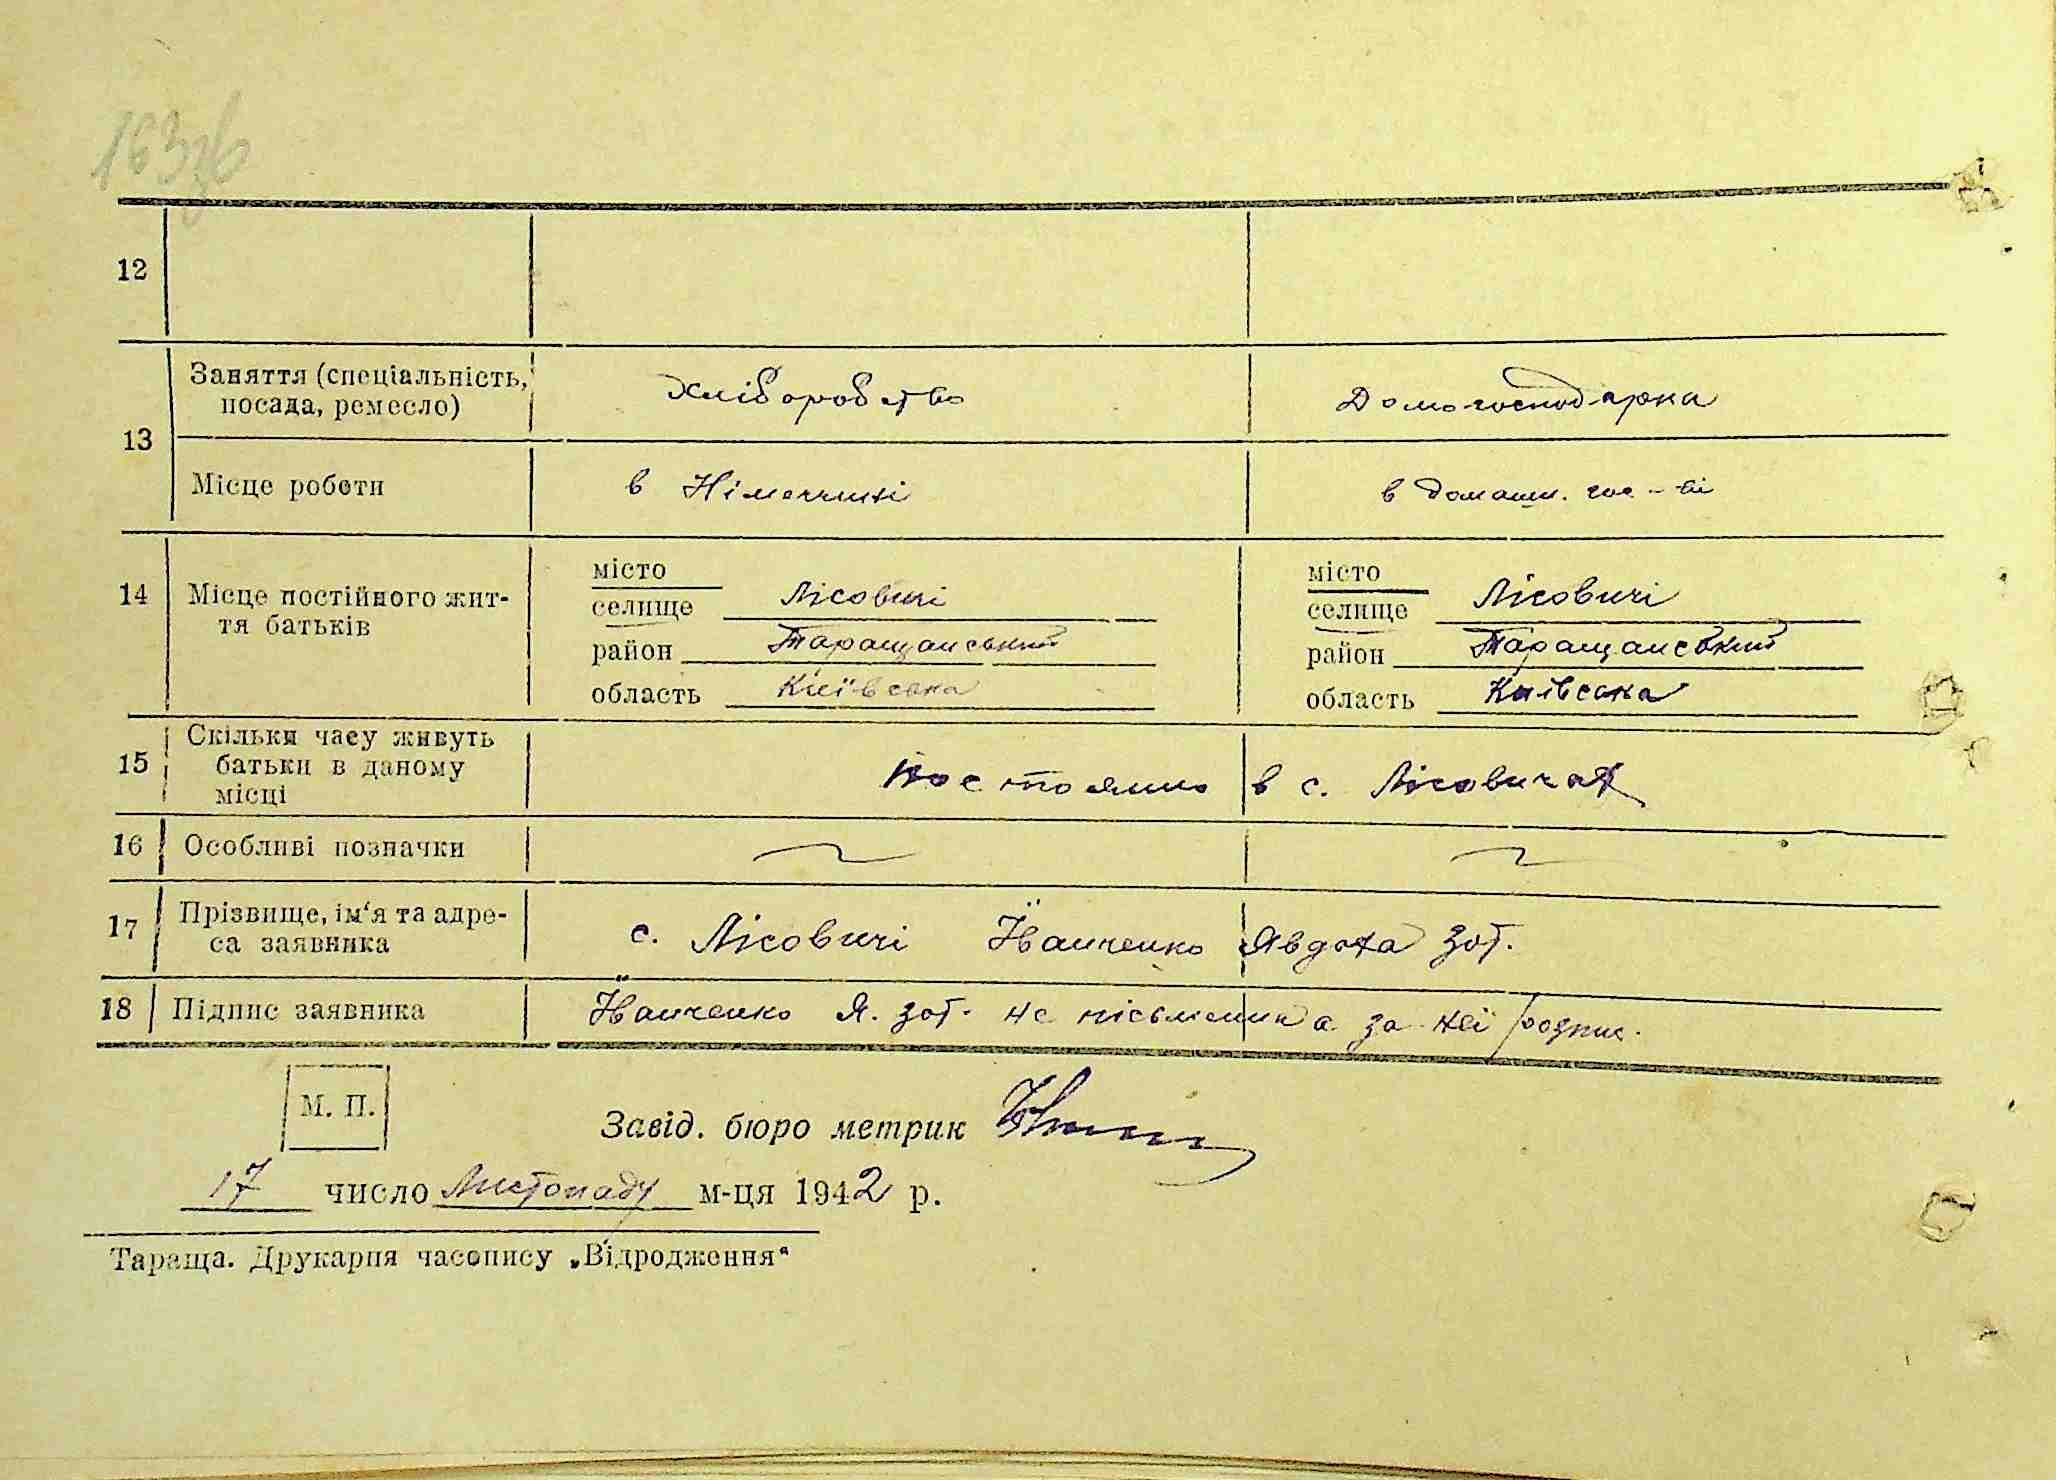 163зв
12
13
Заняття (спеціальність,
посада, ремесло)
Хліборобство
Домогосподарка
Місце роботи
в Німеччині
в домашн. гос-ві
14
Місце постійного жит-
тя батьків
місто
селище Лісовичі
район Таращанський
область Київська
місто
селище Лісовичі
район Таращанський
область Київська
15
Скільки часу живуть
батьки в даному
місці
Постоянно в с. Лісовичах
16
Особливі позначки
17
Прізвище, ім'я та адре-
са заявника
с. Лісовичі Іванченко Явдоха Зот.
18
Підпис заявника
Іванченко Я. Зот. не письменна за неї розпис.
М. П.
Завід. бюро метрик
17 число Листопаду м-ця 1942 р.
Тараща. Друкарня часопису „Відродження“